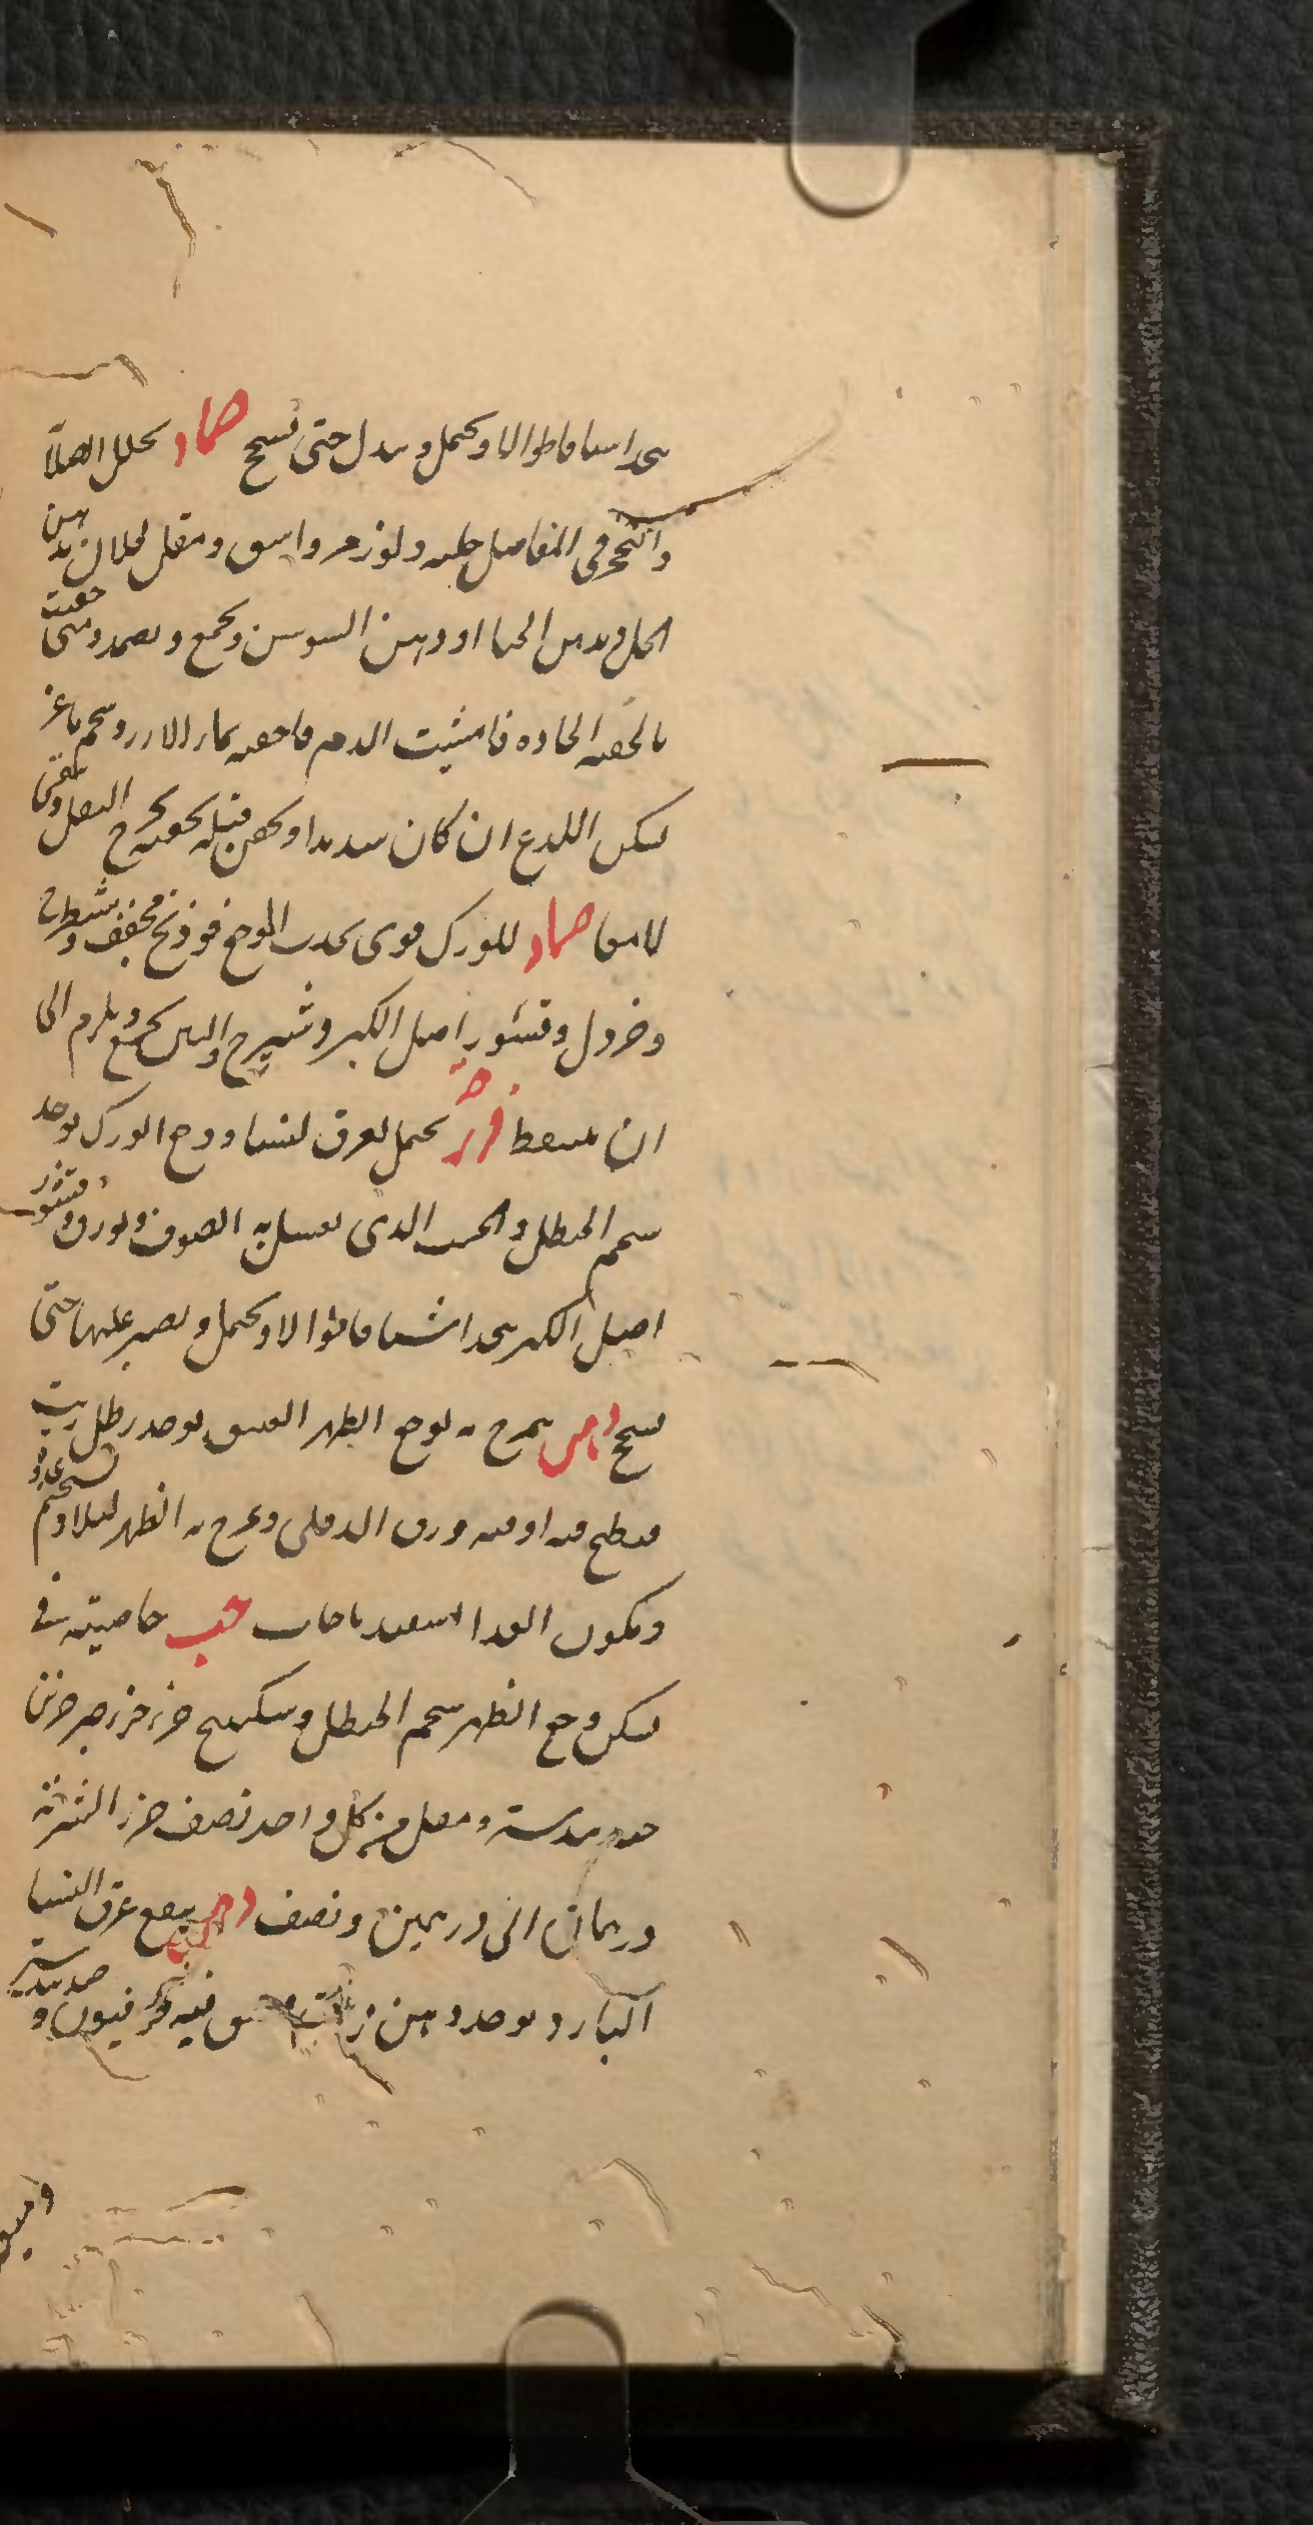 يتخذ اشيافا طوالا ويحتمل ويبدل حتى يسحج ضماد يحلل الصلابة
والتحجر في المفاصل حلبه ولوز مر واشق ومقل يحلان بدهن
الخل وبدهن الحنا او دهن السوسن ويجمع ويضمد ومتى حقنت
بالحقنه الحاده فامشيت الدم فاحقنه بماء الارز وشحم ماعز
ليسكن اللدع ان كان شديدا ويحقن قبله بحقنه تخرج الثفل وتنقى
الامعا ضماد للورك قوى يجذب الوجع فوذنج مجفف وشيطرج
وخردل وقشور اصل الكبر وشيرج والتين يجمع ويلزم الى
ان يتنفط يحتمل لعرق النسا ووجع الورك يوخد
شحم الحنظل والذى يغسل به الصوف وبورق وقشور
اصل الكبر يتخذ اشيافا طوالا ويحتمل ويصبر عليها حتى
يسحج دهن يمرخ به لوجع الظهر العتيق يوخد رطل زيت
فيطبخ فيه اوقيه ورق الدفلى ويمرخ به الظهر ليلا ويستحم
ويكون الغدا اسفيدباجات حب خاصيته في
تسكين وجع الظهر شحم الحنظل وسكبينج جزء جزء صبر جزئين
جندبيدستر ومقل من كل واحد نصف جزء الشربة
درهمان الى درهمين ونصف دهن ينفع عرق النسا
البارد يوخد دهن فيفتق فيه فرفيون وجندبيدستر